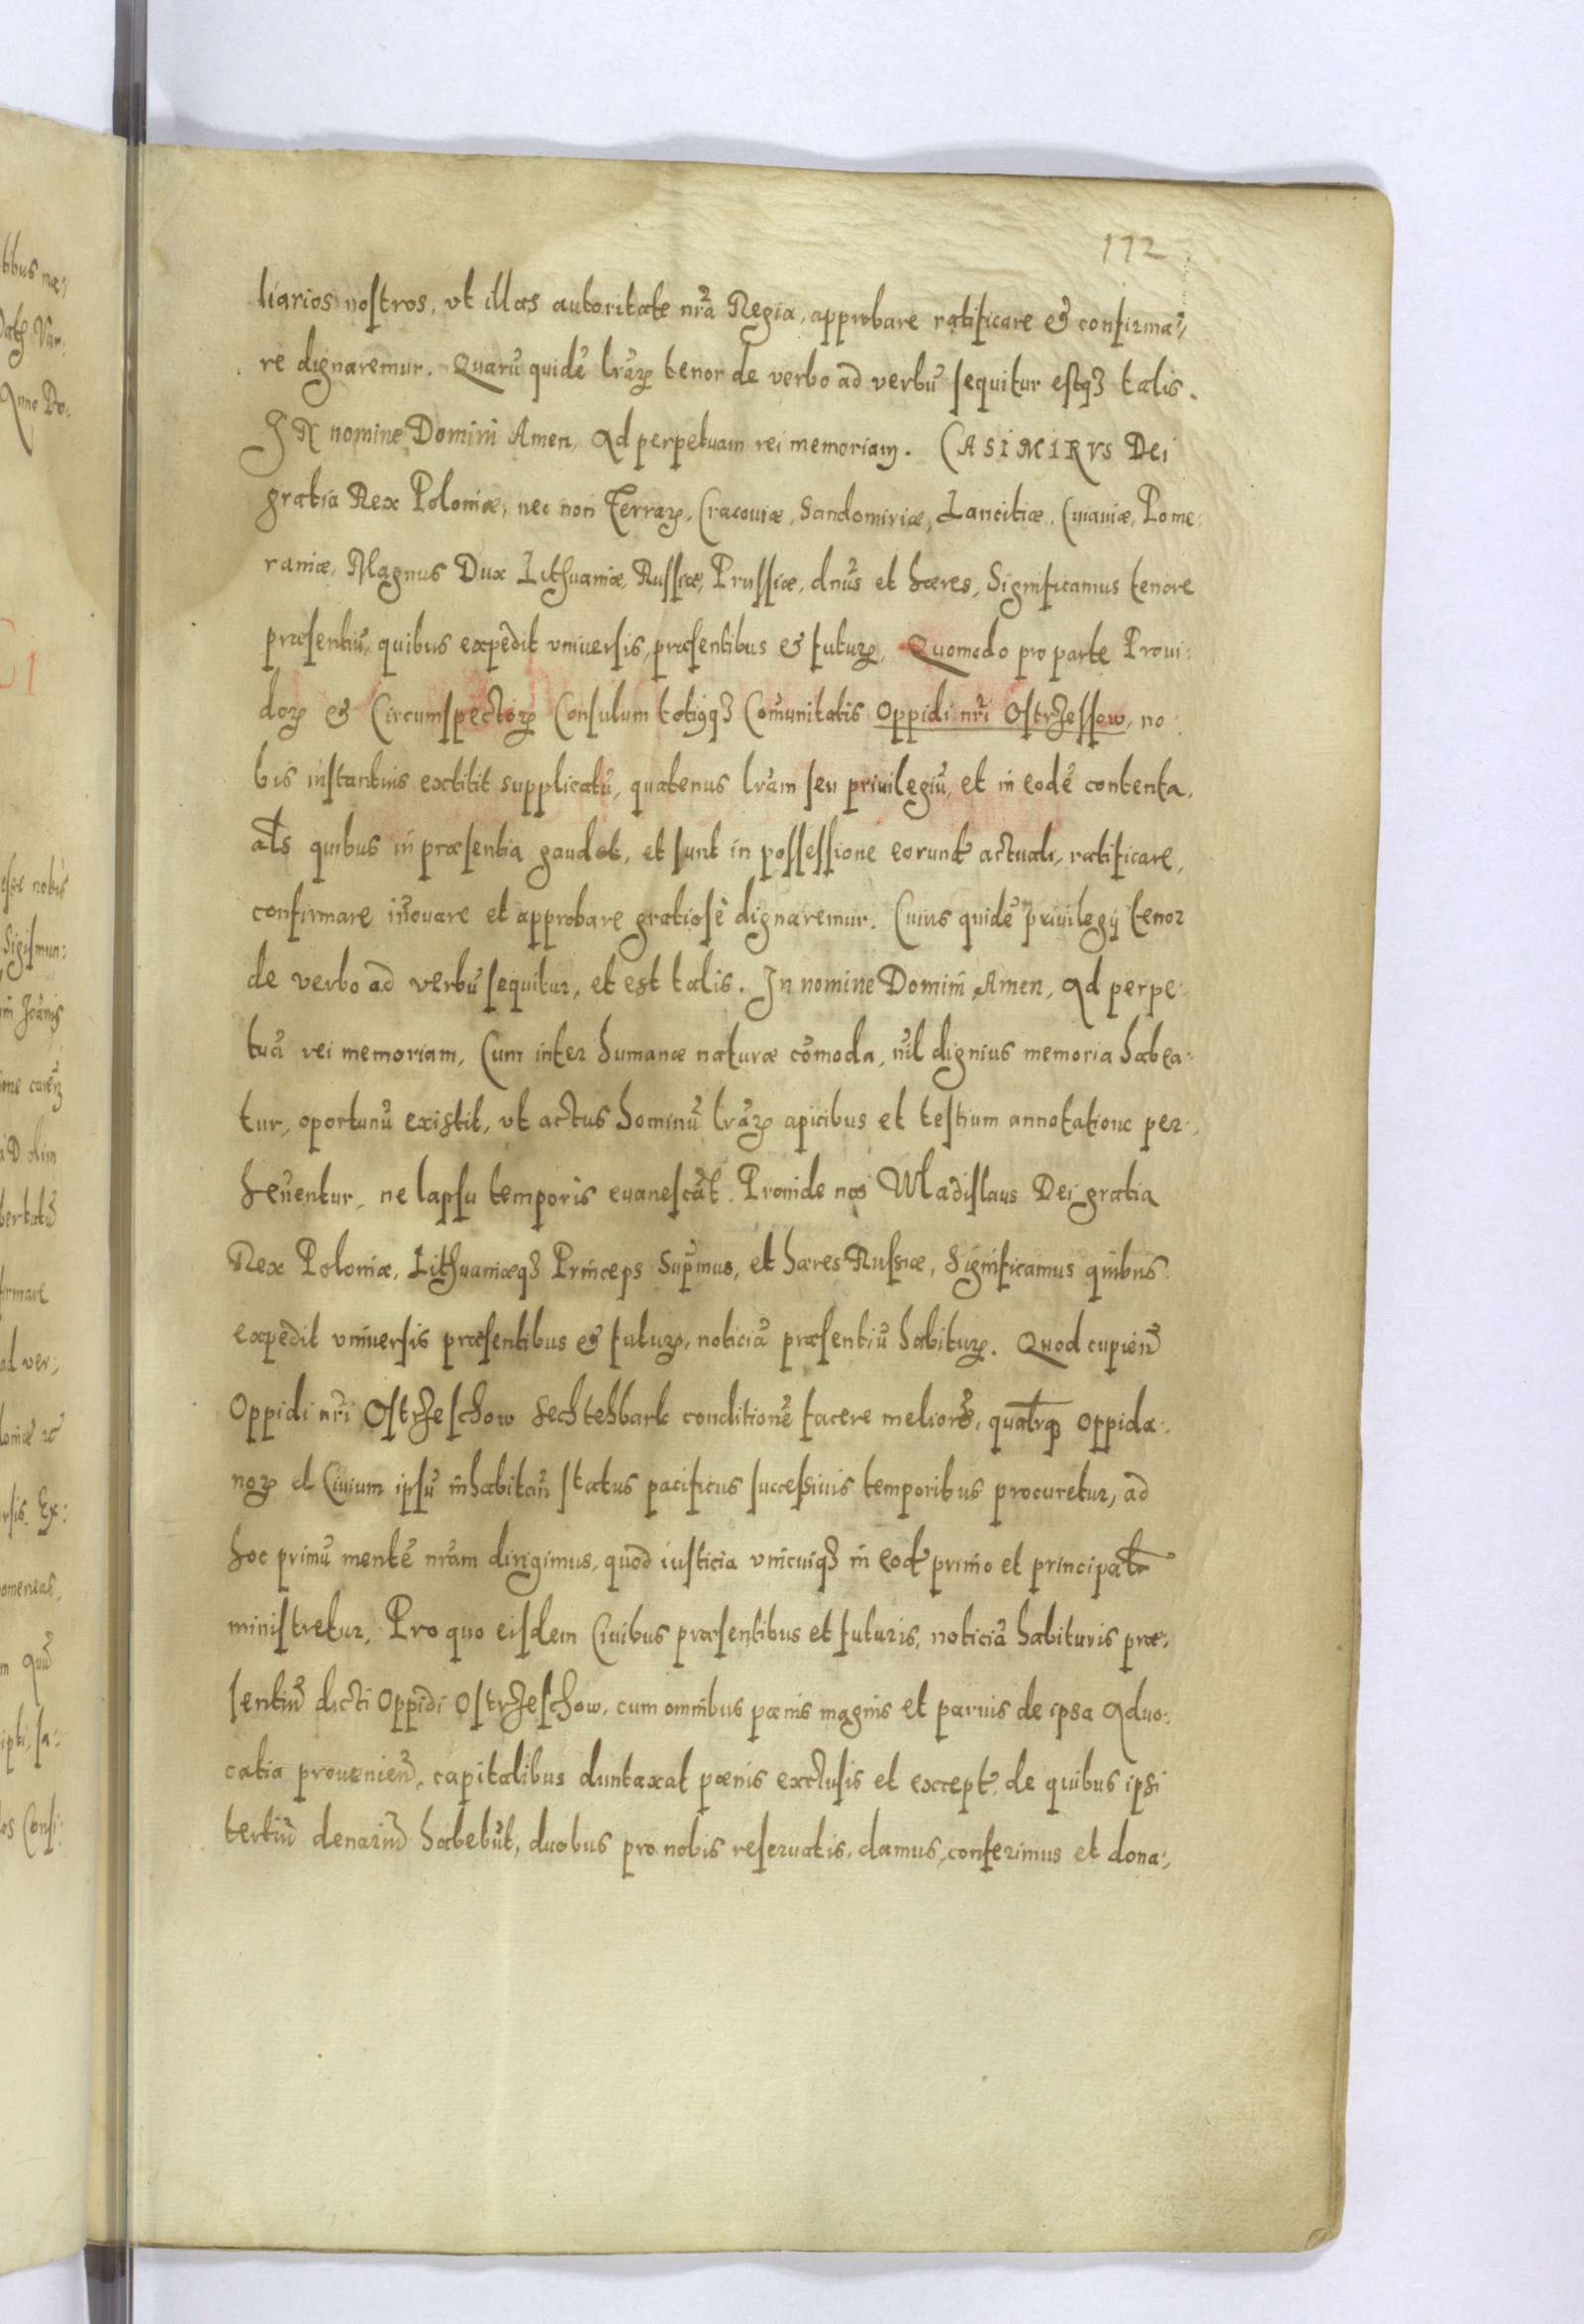 172
liarios nostros, vt illas autoritate nr̃a Regia, approbare ratificare & confirma:
re dignaremur. Quarũ quidẽ lr̃aꝝ tenor de verbo ad verbũ sequitur estqꝫ talis.
IN nomine Domini Amen, Ad perpetuam rei memoriam. CASIMIRVS Dei
gratia Rex Poloniæ, nec non Terraꝝ, Cracouiæ, Sandomiriæ, Lancitiæ, Cuiauiæ, Pome:
raniæ, Magnus Dux Lithuaniæ, Russiæ, Prussiæ, dnũs et hæres, Significamus tenore
præsentiũ, quibus expedit vniuersis, præsentibus & futuꝝ, Quomodo pro parte Proui:
doꝝ & Circumspectoꝝ Consulum totiꝰqꝫ Com̃unitatis Oppidi nr̃i Ostrzessow, no:
bis instantius extitit supplicatũ, quatenus lr̃am seu priuilegiũ, et in eodẽ contenta,
als quibus in præsentia gaudet, et sunt in possessione eorund actuali, ratificare,
confirmare iñouare et approbare gratiosè dignaremur. Cuius quidẽ priuilegij tenor
de verbo ad verbũ sequitur, et est talis. In nomine Domini Amen, Ad perpe:
tuã rei memoriam, Cum inter humanæ naturæ com̃oda, nil dignius memoria habea:
tur, oportunũ existit, vt actus hominũ lr̃aꝝ apicibus et testium annotatione per:
heñentur, ne lapsu temporis euanescãt. Proinde nos Wladislaus Dei gratia
Rex Poloniæ, Lithuaniæqꝫ Princeps Supr̃mus, et hæres Russiæ, Significamus quibus
expedit vniuersis præsentibus & futuꝝ, noticiã præsentiũ habituꝝ. Quod cupień
Oppidi nr̃i Ostrzeschow conditionẽ facere meliorẽ, Oppida:
noꝝ et Ciuium ipsũ inhabitañ status pacificus successiuis temporibus procuretur, ad
hoc primũ mentẽ nr̃am dirigimus, quod iusticia vnicuiqꝫ in eod primo et principalr
ministretur, Pro quo eisdem Ciuibus præsentibus et futuris, noticiã habituris præ:
sentiũ dicti Oppidi Ostrzeschow, cum omnibus pœnis magnis et paruis de ipsa Aduo:
catia proueñień, capitalibus duntaxat pœnis exclusis et except, de quibus ipsi
tertiũ denariũ habebũt, duobus pro nobis reseruatis, damus, conferimus et dona: